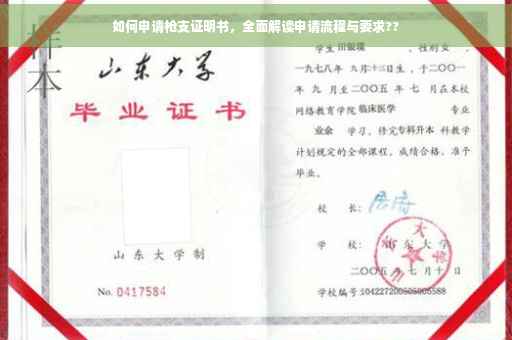 如何申请枪支证明书，全面解读申请流程与要求??
样本
山东大学
毕业证书
山东大学制
No. 0417584
学生田银瑞 ，性别女 ，
一九七八年 九月十三日生，于二〇〇一
年 九 月至二〇〇五 年 七 月在本校
网络教育学院 临床医学 专业
业余 学习，修完专科升本 科教学
计划规定的全部课程，成绩合格，准予
毕业。
校 长：
学 校： 山东大学
二〇〇五 年 七 月 十 日
学校编号: